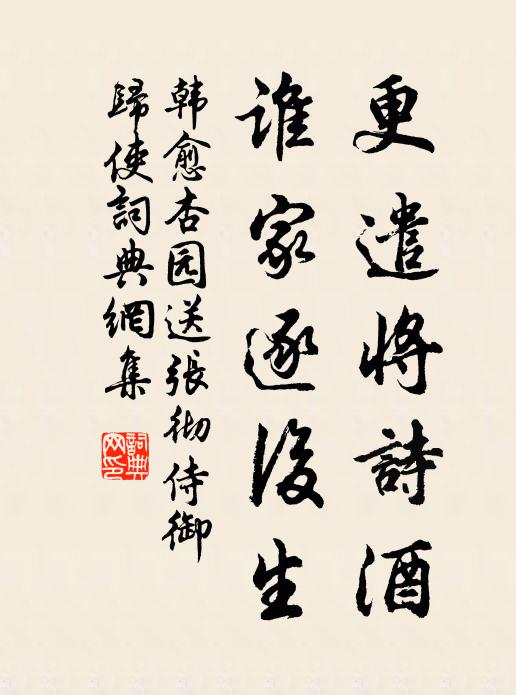 更遣將詩酒
誰家逐後生
韩愈杏园送張彻侍御
歸使詞典網集
詞典
网印